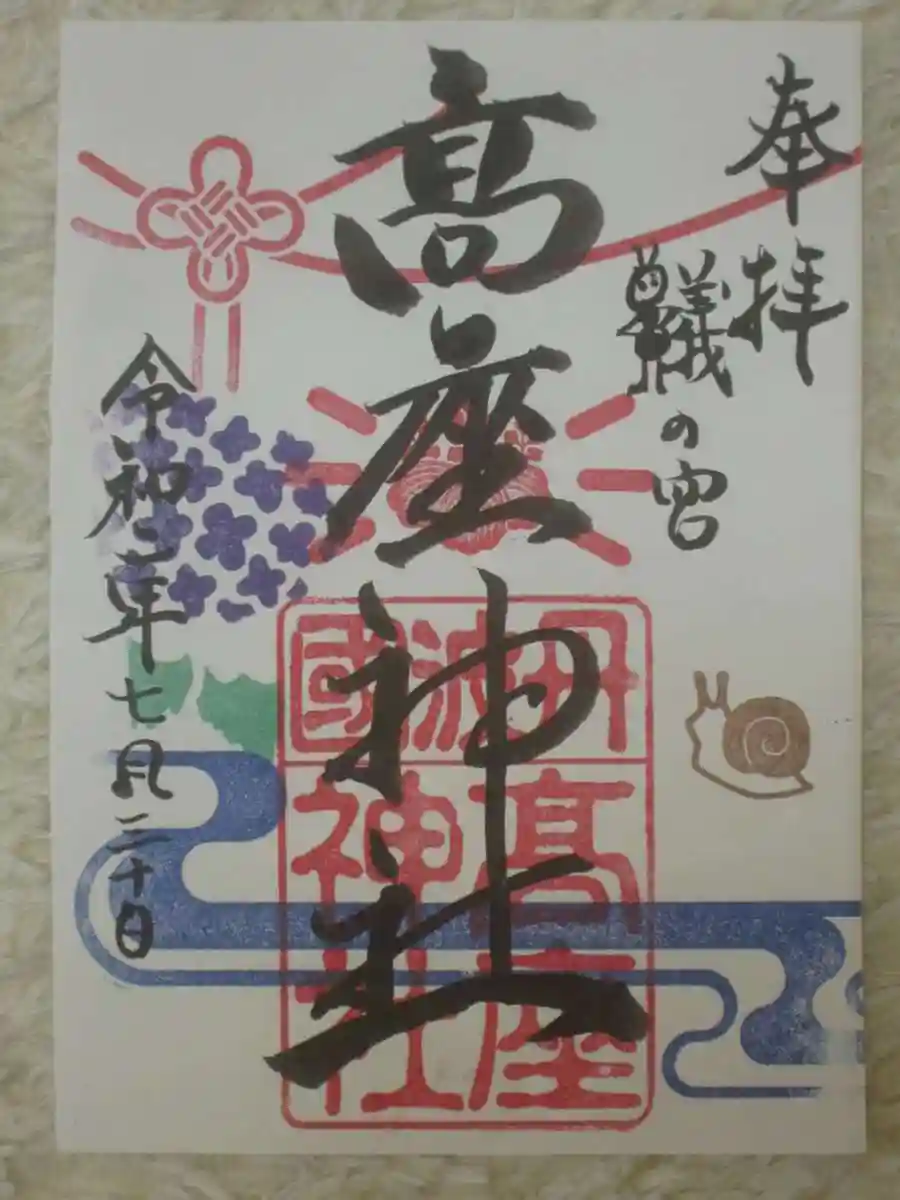 奉拝
蟻の宮
髙座神社
令和二年七月二十日
丹波國
髙座
神社